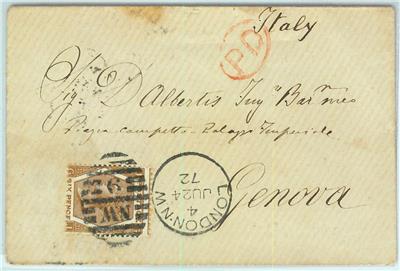 Italy
PD
Sig. D'Albertis Ing. Barmeo
Piazza Campetto - Palazzo Imperiale
Genova
SIX PENCE
NW
LONDON·N.W
4
JU 24
72